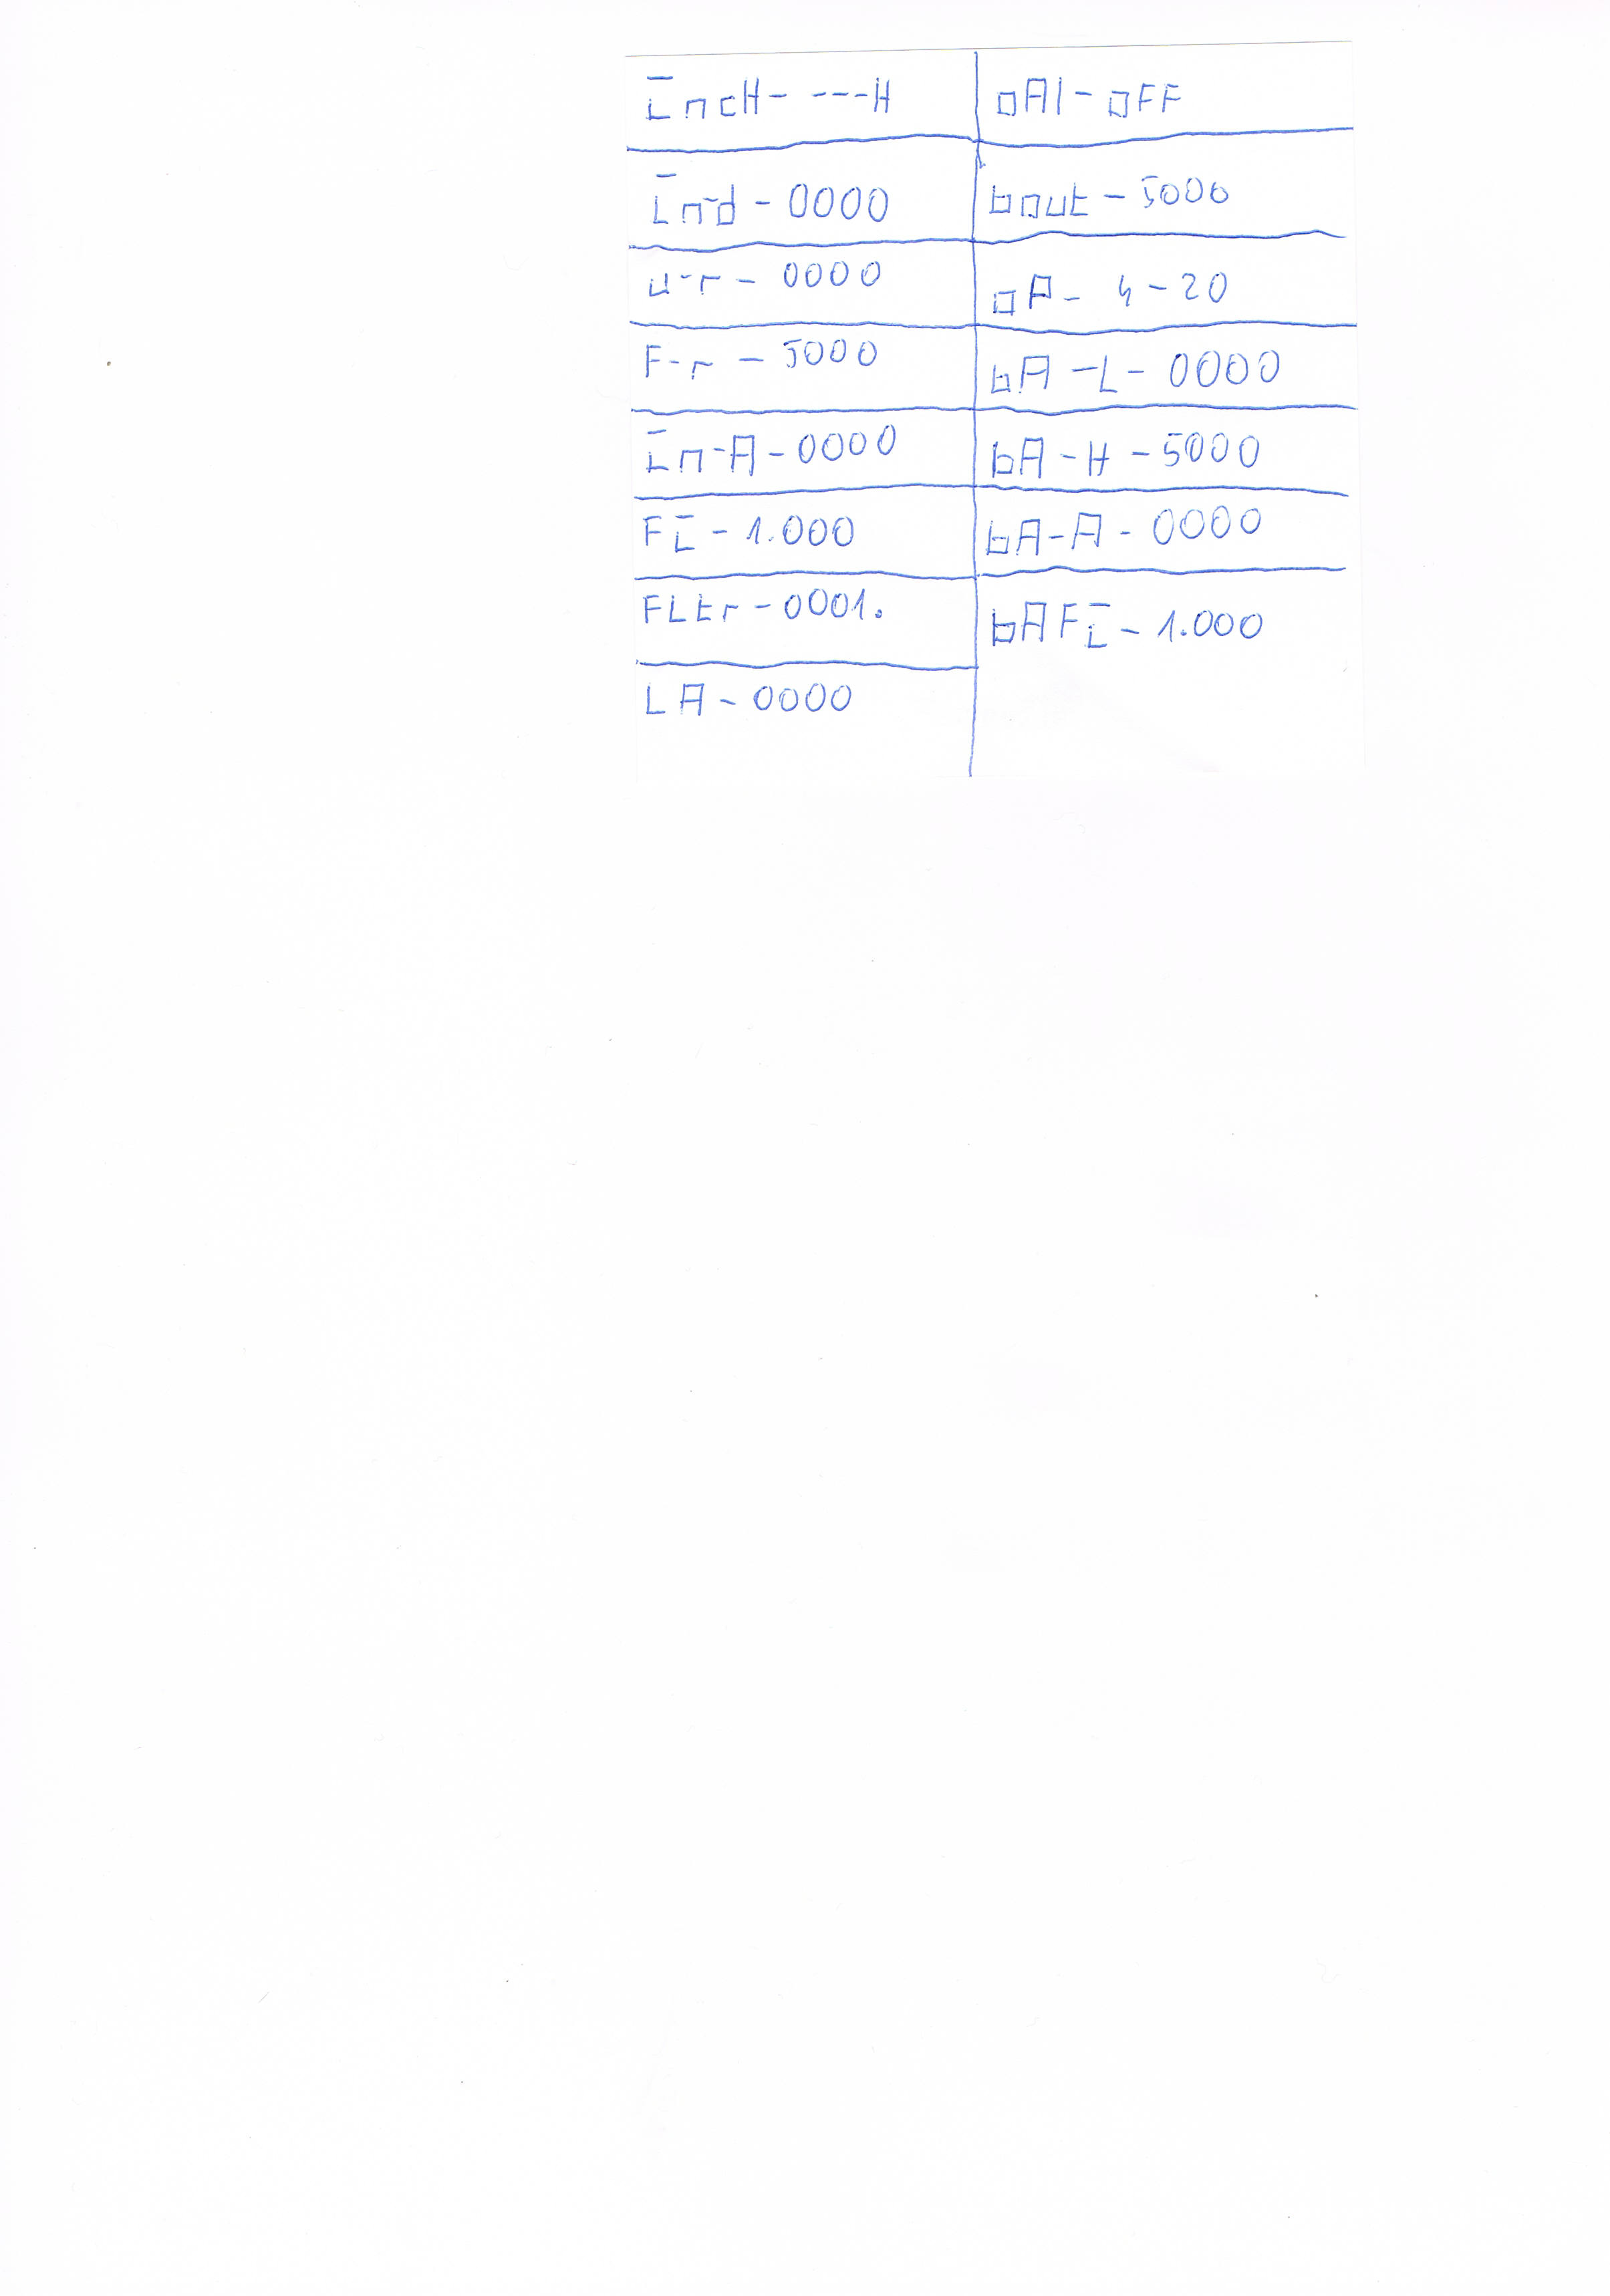 inCH- ---H
in-d - 0000
u-r - 0000
F-r - 5000
in-A - 0000
Fi - 1.000
FLtr - 0001.
LA - 0000
oA1 - oFF
bout - 5000
oP - 4-20
bA-L - 0000
bA-H - 5000
bA-A - 0000
bAFi - 1.000